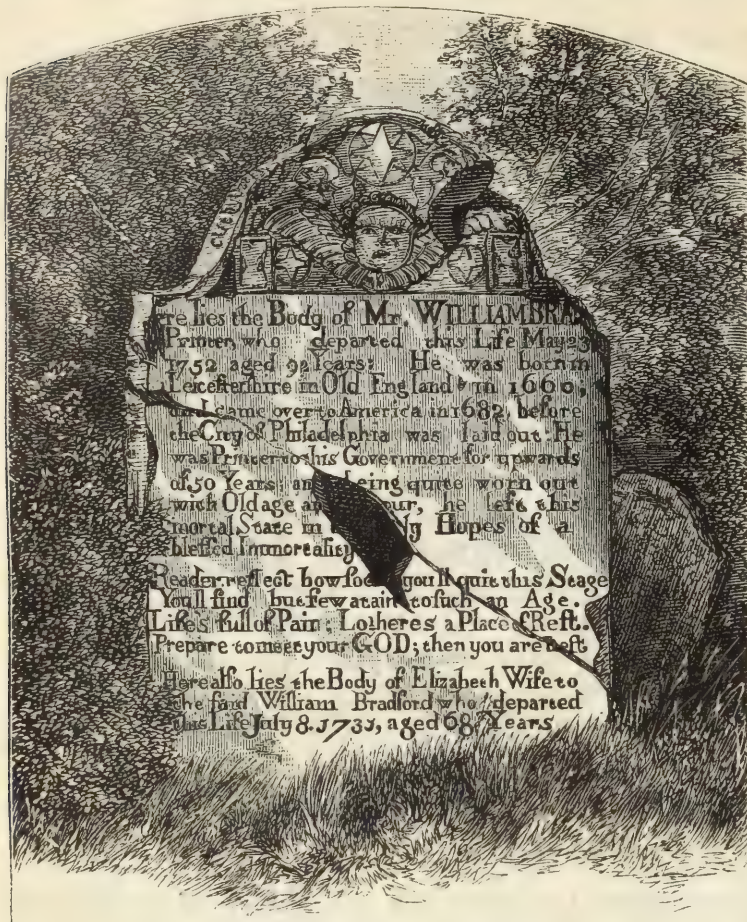 re lies the Body of Mr. WILLIAM BRA
Printer, who departed this Life May 23
1752 aged 92 Years: He was born in
Leiceſterſhire in Old England in 1660,
and came over to America in 1682, before
the City of Philadelphia was laid out: He
was Printer to this Government for upwards
of 50 Years; an being quite worn out
with Old age an our, he left this
mortal State in ly Hopes of a
bleſſed Immortality
Reader reflect how ſoo you'll quit this Stage
You'll find but few atain to ſuch an Age.
Life's full of Pain: Lo here's a Place of Reſt.
Prepare to meet your GOD; then you are bleſt
Here alſo lies the Body of Elizabeth Wife to
the ſaid William Bradford who departed
this Life July 8. 1731, aged 68 Years